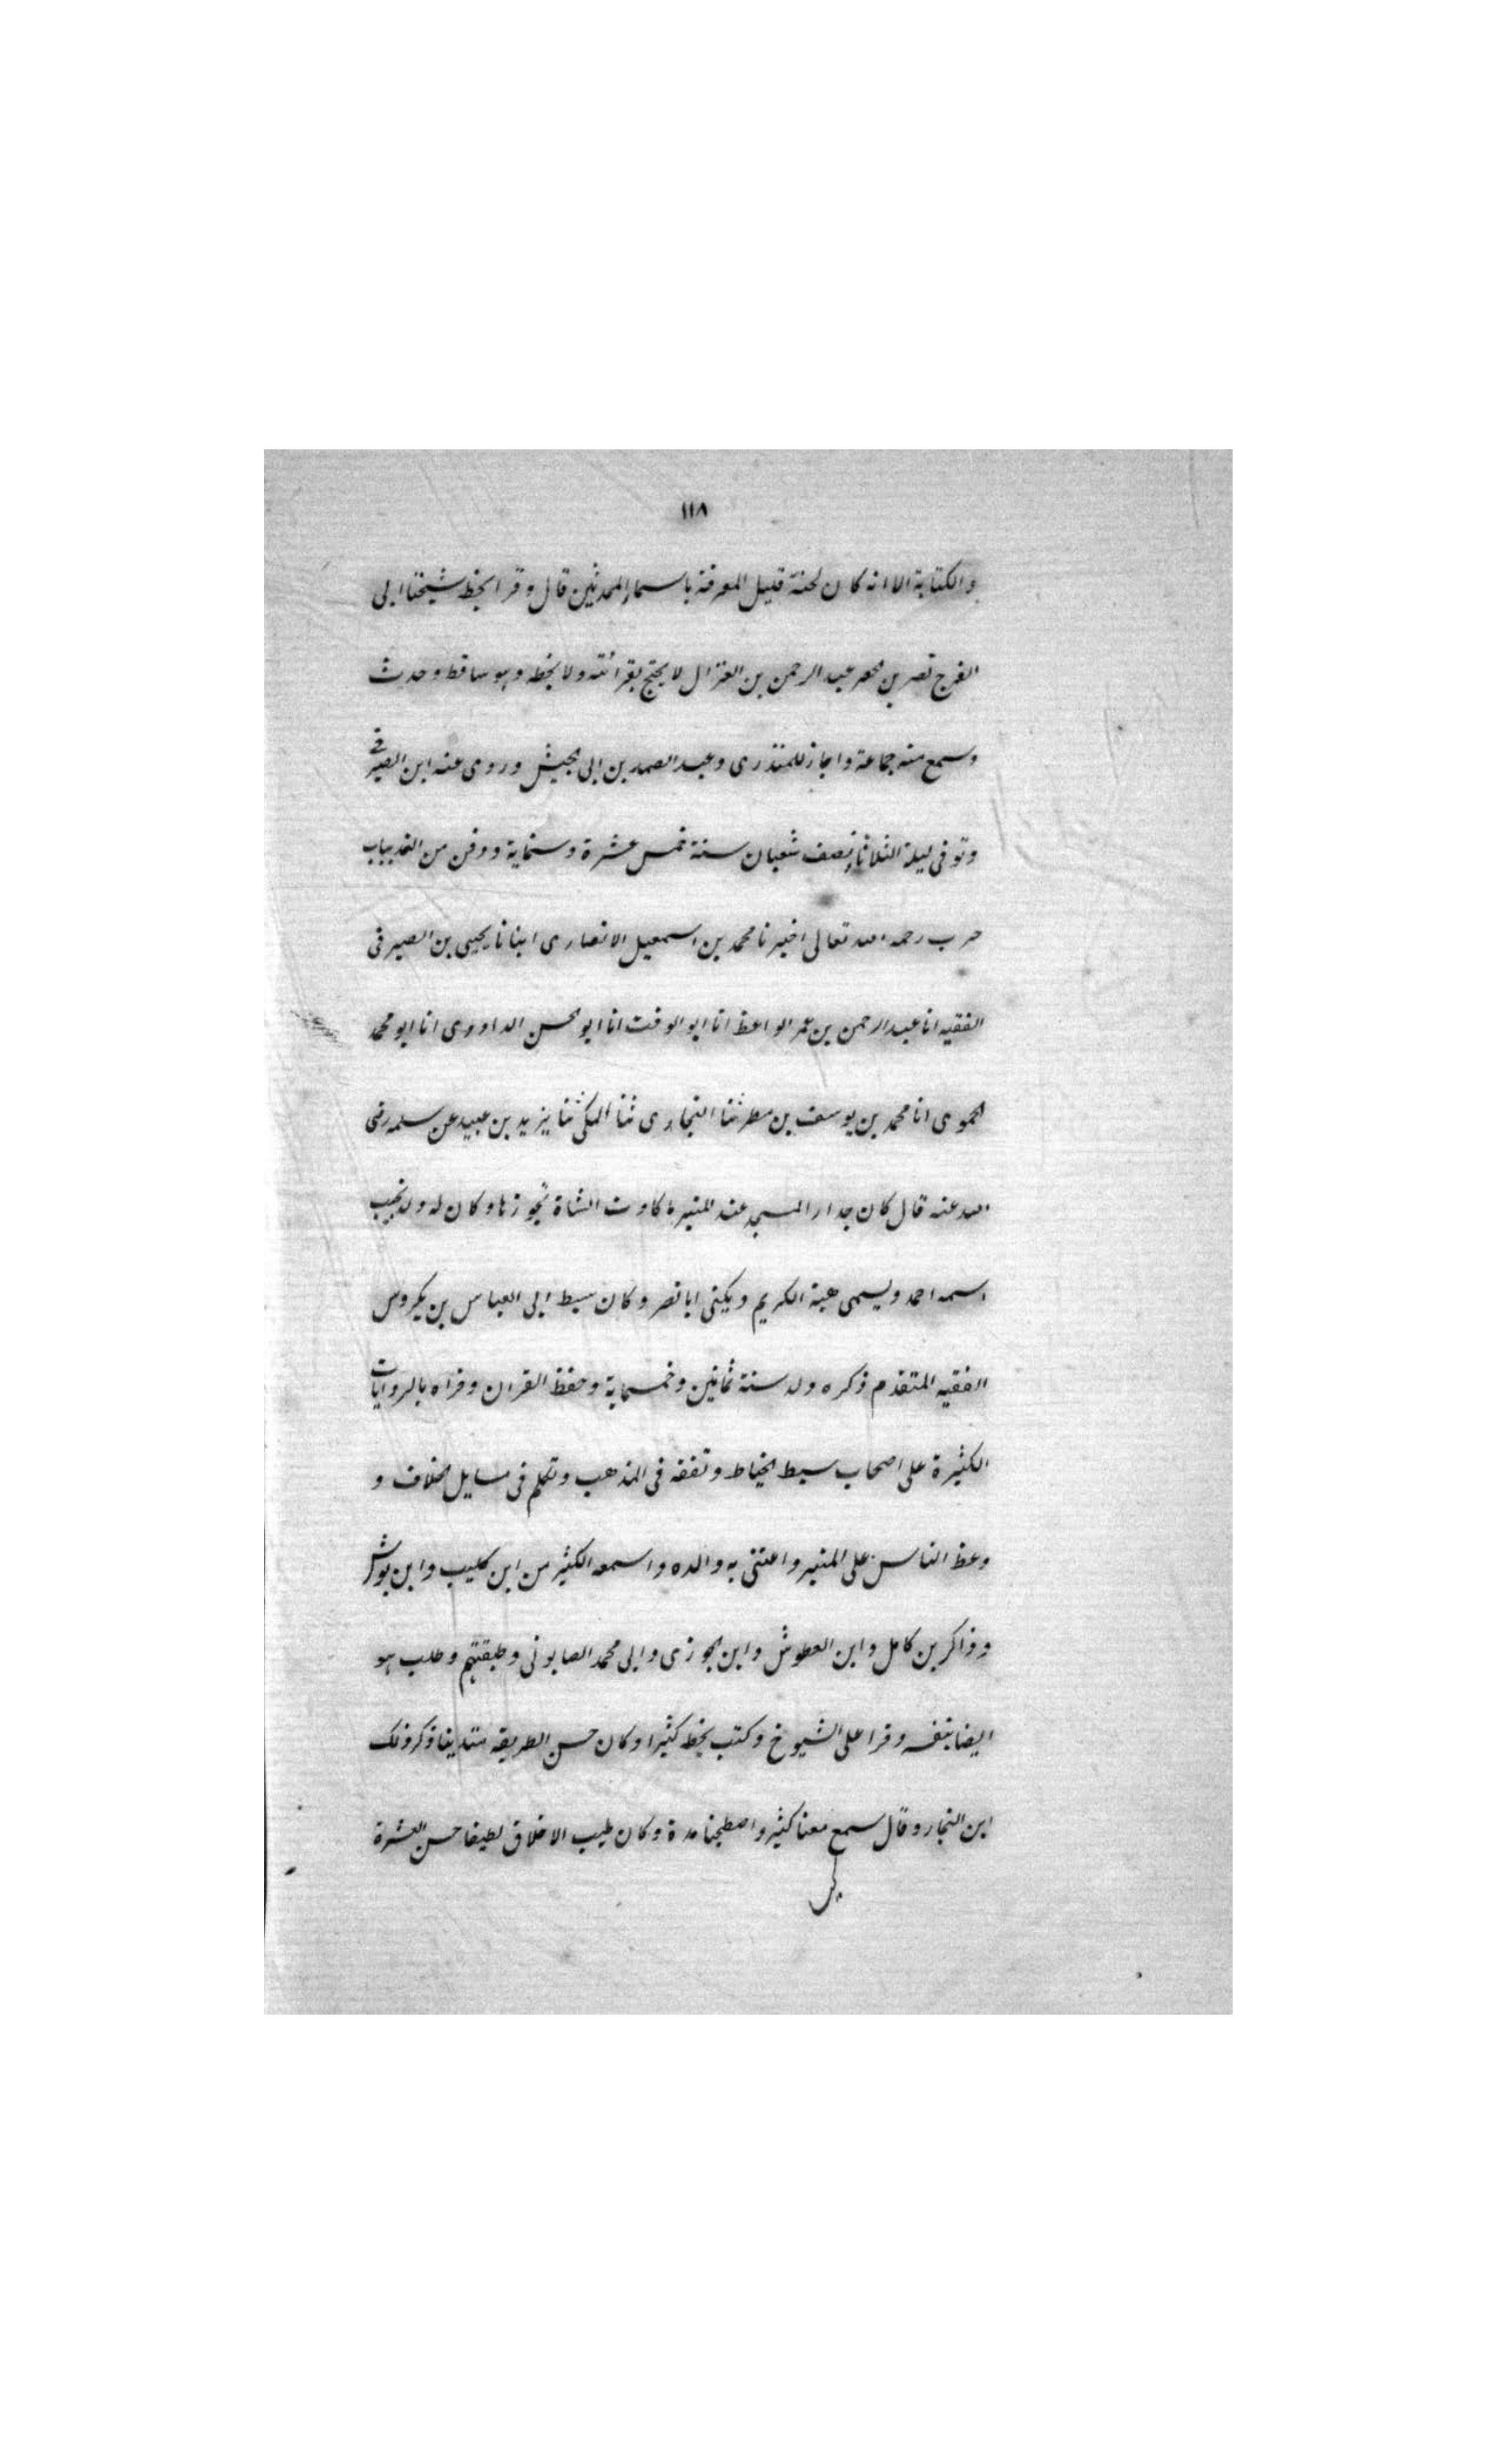 ١١٨
والكتابة الا انه كان لحنة قليل المعرفة باسماء المحدثين قال وقرا بخط شيخنا ابى
الفرج نصر بن محمد عبد الرحمن بن الغزال لا يحتج بقرائته ولا بخطه وهو ساقط وحدث
وسمع منه جماعة واجاز للمنذرى وعبد الصمد بن ابى الجيش وروى عنه ابن الصيرفى
وتوفى ليلة الثلاثاء نصف شعبان سنة خمس عشرة وستماية ودفن من الغد بباب
حرب رحمه الله تعالى اخبرنا محمد بن اسمعيل الانصارى انبانا يحيى بن الصيرفى
الفقيه انا عبد الرحمن بن عمر الواعظ انا ابو الوقت انا ابو الحسن الداوودى انا ابو محمد
الحموى انا محمد بن يوسف بن مطر ثنا البخارى ثنا المكى ثنا يزيد بن عبيد عن سلمه رضى
الله عنه قال كان جدار المسجد عند المنبر ما كادت الشاة تجوزها وكان له ولد نجيب
اسمه احمد ويسمى هبة الكريم ويكنى ابا نصر وكان سبط ابى العباس بن بكروس
الفقيه المتقدم ذكره ولد سنة ثمانين وخمسماية وحفظ القران وقراه بالروايات
الكثيرة على اصحاب سبط الخياط وتفقه فى المذهب وتكلم فى مسايل الخلاف و
وعظ الناس على المنبر واعتنى به والده واسمعه الكثير من ابن كليب وابن بوش
وذاكر بن كامل وابن العطوش وابن الجوزى وابى محمد الصابونى وطبقتهم وطلب هو
ايضا بنفسه وقرا على الشيوخ وكتب بخطه كثيرا وكان حسن الطريقه متدينا ذكر ذلك
ابن النجار وقال سمع معنا كثير واصطحبنا مدة وكان طيب الاخلاق لطيفا حسن العشرة